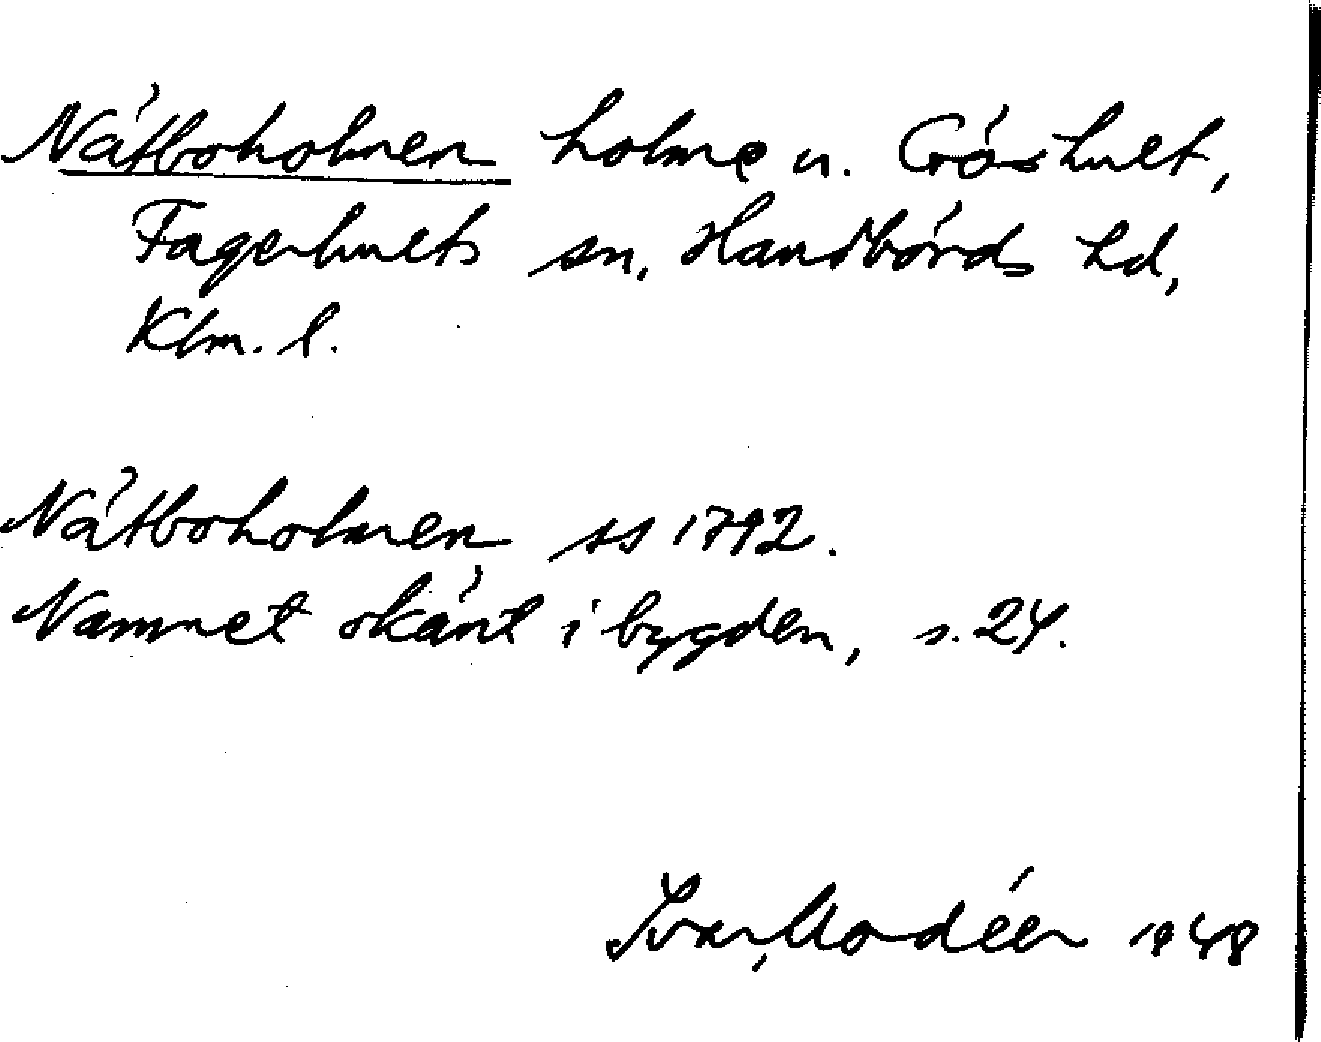 Nätboholmen holme u. Gröshult,
Fagerhults sn, Handbörds hd,
Klm. l.
Nätboholmen ss 1792.
Namnet okänt i bygden, s. 24.
Ivar Modéer 1948